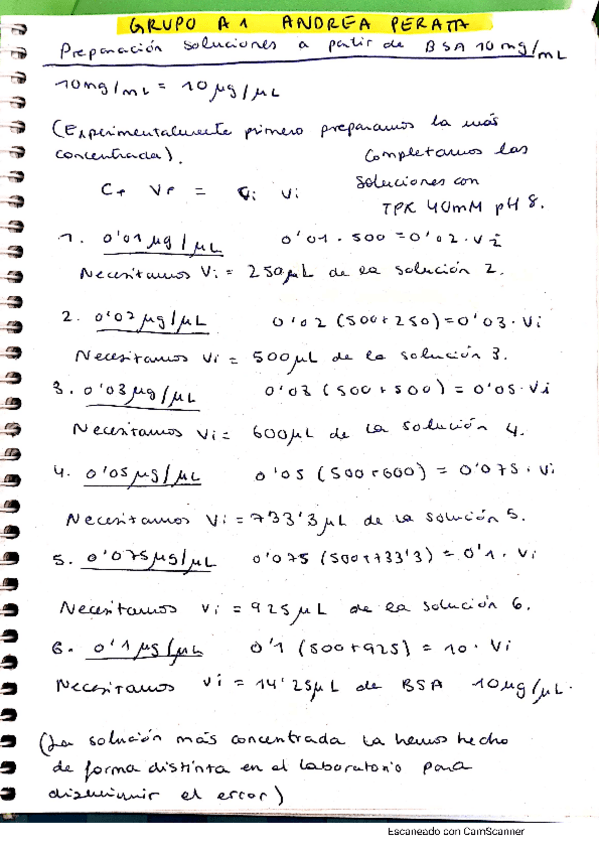 GRUPO A1 ANDREA PERATA
Preparación soluciones a partir de BSA 10 mg/mL
10mg/mL = 10 µg/µL
(Experimentalmente primero preparamos la más
concentrada).
Completamos las
soluciones con
TPK 40mM pH 8.
Cf Vf = Ci Vi
1. 0'01 µg/µL 0'01 · 500 = 0'02 · Vi
Necesitamos Vi = 250µL de la solución 2.
2. 0'02 µg/µL 0'02 (500+250)=0'03 · Vi
Necesitamos Vi = 500µL de la solución 3.
3. 0'03 µg/µL 0'03 (500+500) = 0'05 · Vi
Necesitamos Vi = 600µL de la solución 4.
4. 0'05 µg/µL 0'05 (500+600) = 0'075 · Vi
Necesitamos Vi = 733'3 µL de la solución 5.
5. 0'075 µg/µL 0'075 (500+733'3) = 0'1 · Vi
Necesitamos Vi = 925 µL de la solución 6.
6. 0'1 µg/µL 0'1 (500+925) = 10 · Vi
Necesitamos Vi = 14'25µL de BSA 10µg/µL.
(La solución más concentrada la hemos hecho
de forma distinta en el laboratorio para
disminuir el error)
Escaneado con CamScanner